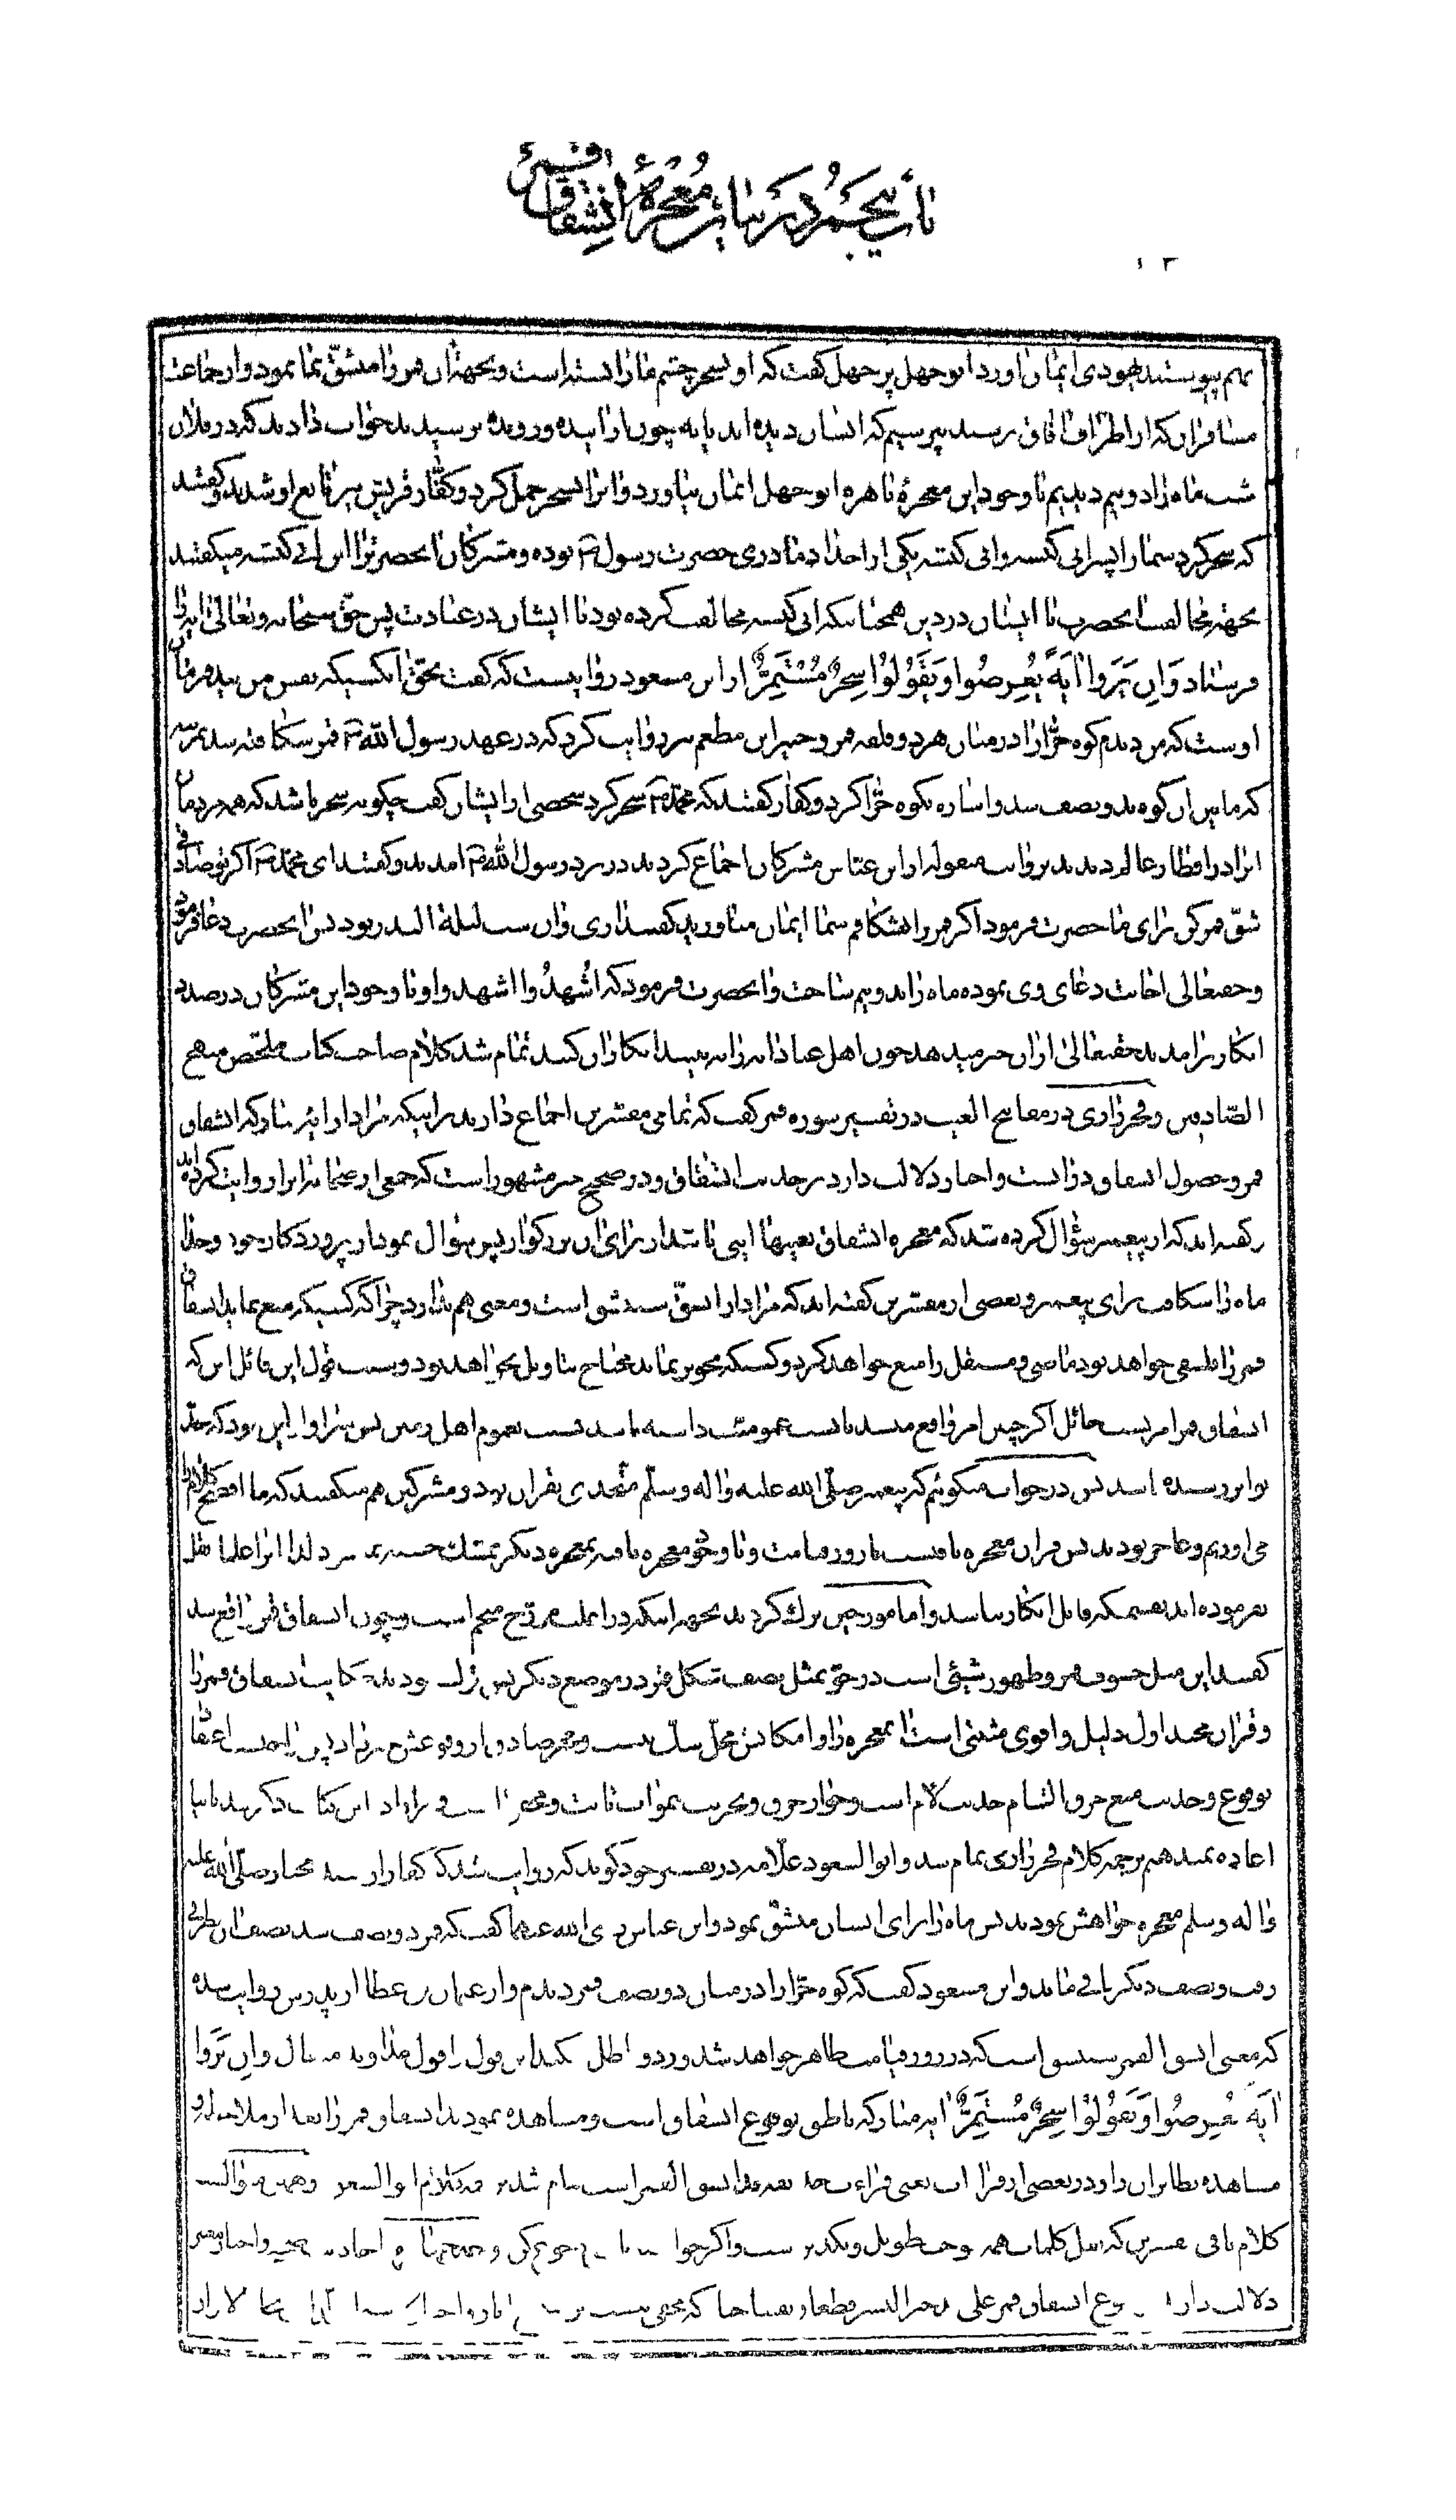 باب پنجم در بیان معجزهٔ انشقاق قمر
۱۳
بهم پیوستند یهودی ایمان اورد ابو جهل پر جهل گفت که او بسحر چشم ما را بسته است و بجهة ان قمر را منشق بما نمود و از جماعت
مسافران که از اطراف افاق برسند بپرسیم که ایشان دیده اند یا نه چون از اینده و رونده پرسیدند جواب دادند که در فلان
شب ماه را دو نیم دیدیم با وجود این معجزهٔ باهره ابو جهل ایمان نیاورد و انرا بسحر حمل کرد و کفار قریش نیز تابع او شدند و گفتند
که سحر کرد شما را پسر ابی کبشه و ابی کبشه یکی از اجداد مادری حضرت رسول بوده و مشرکان انحضرت را ابن ابی کبشه میگفتند
بجهة مخالفت انحضرت با ایشان در دین همچنانکه ابی کبشه مخالفت کرده بود با ایشان در عبادت پس حق سبحانه و تعالی این ایه را
فرستاد وَاِن یَرَوا ایَةً یُعرِضُوا وَیَقُولُوا سِحرٌ مُستَمِرٌّ از ابن مسعود روایتست که گفت بحق انکسیکه نفس من بید فرمان
اوست که من دیدم کوه حرا را در میان هر دو فلقه قمر و جبیر ابن مطعم نیز روایت کرد که در عهد رسول الله قمر شکافته شد بمرتبه
که مابین ان کوه بدو نصف شد و اشاره بکوه حرا کرد و کفار گفتند که محمد سحر کرد شخصی از ایشان گفت چگونه سحر باشد که همه مردمان
انرا در اقطار عالم دیدند بروایت منقوله از ابن عباس مشرکان اجتماع کردند در نزد رسول الله امدند و گفتند ای محمد اگر تو صادقی
شق قمر کن برای ما حضرت فرمود اگر قمر را بشکافم شما ایمان میاورید گفتند اری و ان شب لیلة البدر بود پس انحضرت دعا فرمود
و حقتعالی اجابت دعای وی نموده ماه را بدو نیم ساخت و انحضرت فرمود که اشهدوا اشهدوا و با وجود این مشرکان در صدد
انکار برامدند حقتعالی از ان خبر میدهد چون اهل عناد انرا نه بیند انکار ان کنند تمام شد کلام صاحب کتاب ملخص منهج
الصادقین و فخر رازی در مفاتیح الغیب در تفسیر سوره قمر گفت که تمامی مفسرین اجماع دارند بر اینکه مراد از ایه مبارکه انشقاق
قمر و حصول انشقاق در انست و اخبار دلالت دارد بر حدیث انشقاق و در صحیح خبر مشهور است که جمعی از صحابه انرا روایت کرده اند
و گفته اند که از پیغمبر سؤال کرده شد که معجزه انشقاق بعینها ایتی باشد از برای ان بزرگوار پس سؤال نمود از پروردگار خود و خدا
ماه را شکافت برای پیغمبر و بعضی از مفسرین گفته اند که مراد از انشق سینشق است و معنی هم ندارد چرا که کسیکه منع نماید انشقاق
قمر را فلسفی خواهد بود ماضی و مستقبل را منع خواهد کرد و کسیکه تجویز نماید محتاج بتاویل نخواهد بود و سبب قول این قائل این که
انشقاق قمر امریست هائل اگر چنین امر واقع میشد بایست عمومیت داشته باشد نسبت بعموم اهل زمین پس سزاوار این بود که بحد
تواتر رسیده باشد پس در جواب میگوئیم که پیغمبر صلی الله علیه و اله و سلم متحدی بقران بود و مشرکین هم میگفتند که ما افصح کلام را
می اوریم و عاجز بودند پس قران معجزه باقیست تا روز قیامت و با وجود معجزه باقیه بمعجزه دیگر تمسک جسته نمیشود لذا انرا علما نقل
نفرموده اند بقسمیکه قابل انکار نباشد و اما مورخین ترک کردند بجهة اینکه در اغلب مروج منجم است و چون انشقاق قمر واقع شد
گفتند این مثل خسوف قمر و ظهور شیئی است در جو بمثل نصف شکل قمر در موضع دیگر پس ترک نمودند حکایت انشقاق قمر را
و قران مجید اول دلیل و اقوی مثبتی است این معجزه را و امکانش محل شک نیست و مخبر صادق از وقوعش خبر داد پس واجبست اعتقاد
بوقوع و حدیث منع خرق و التیام حدیث لئام است و جواز خرق و تخریب سموات ثابت و
اعاده نمیدهیم ترجمه کلام فخر رازی تمام شد و ابو السعود علامه در تفسیر خود گوید که روایت شد که کفار از محمد مختار صلی الله علیه
و اله و سلم معجزه خواهش نمودند پس ماه را برای ایشان منشق نمود و ابن عباس رضی الله عنهما گفت که قمر دو نصف شد نصف ان بطرفی
رفت و نصف دیگر باقی ماند و ابن مسعود گفت که کوه حرا را در میان دو نصف قمر دیدم و از عثمان بن عطا از پدرش روایت شده
که معنی انشق القمر سینشق است که در روز قیامت ظاهر خواهد شد و رد و ابطال میکند این قول را قول خداوند متعال وان یَرَوا
ایَةً یُعرِضُوا وَیَقُولُوا سِحرٌ مُستَمِرٌّ ایه مبارکه ناطق بوقوع انشقاق است و مشاهده نمودند انشقاق قمر را بعد از
مشاهده نظایر ان و در بعضی از قراات یعنی قراءت و قد انشق القمر است تمام شد ترجمه کلام ابو السعود و همچنین است
کلام باقی مفسرین که نقل کلمات همه موجب تطویل و
دلالت دارد بر وقوع انشقاق قمر علی